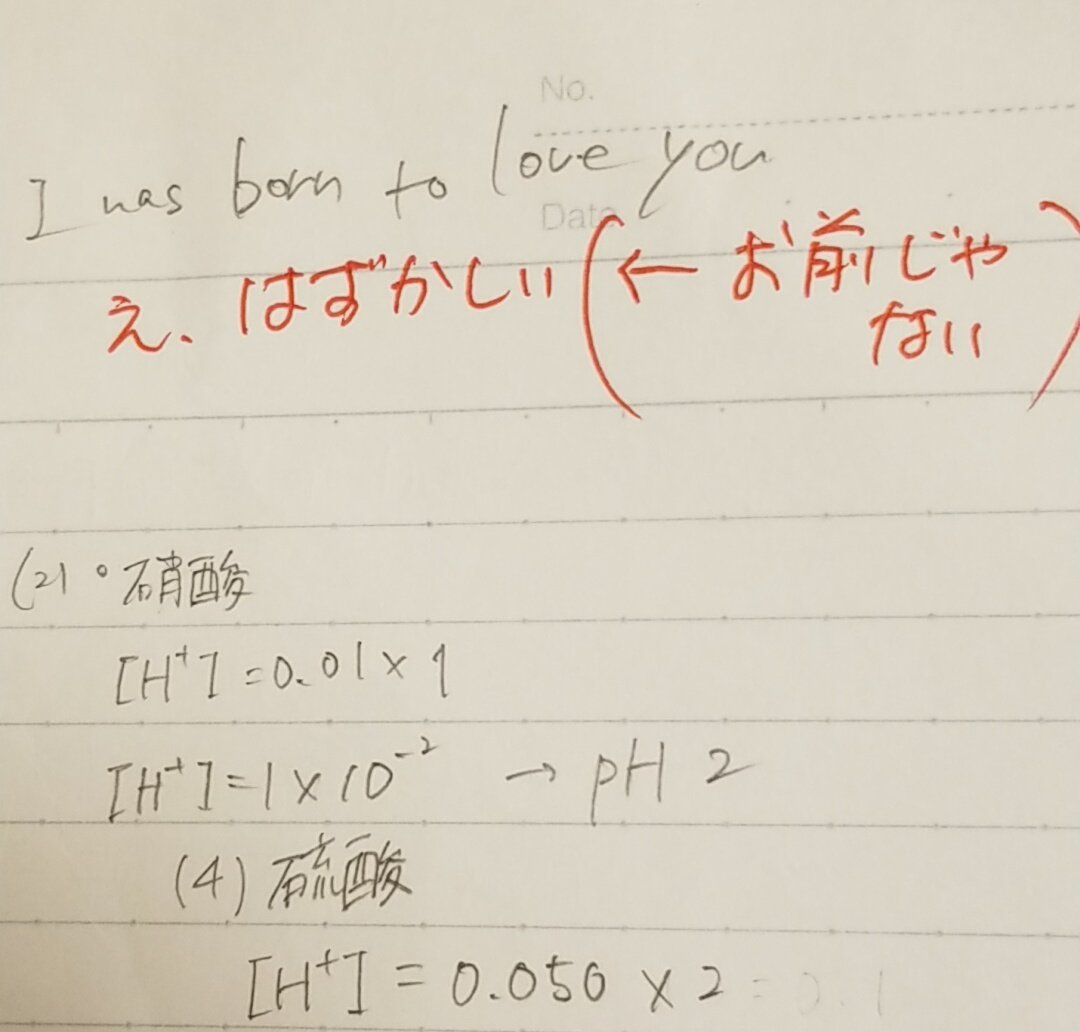 No.
I was born to love you
Date
え、はずかしい(← お前じゃ
ない)
(2)。硝酸
[H⁺] = 0.01 × 1
[H⁺] = 1 × 10⁻² → pH 2
(4) 硫酸
[H⁺] = 0.050 × 2 = 0.1